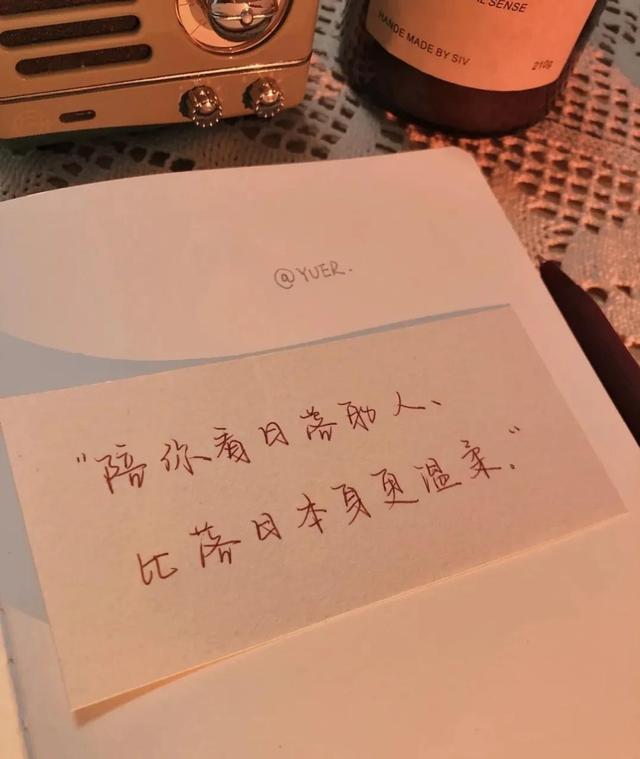 SENSE
HANDE MADE BY SIV
210g
@YUER.
"陪你看日落的人、
比落日本身更温柔."